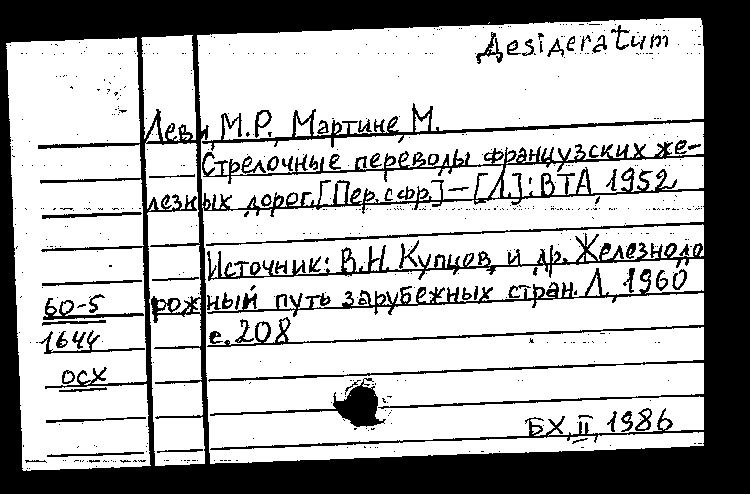 Desideratum
Леви, М.Р., Мартине, М.
Стрелочные переводы французских же-
лезных дорог. [Пер. с фр.] — [Л.]: ВТА, 1952
Источник: В.Н. Купцов и др. Железнодо
рожный путь зарубежных стран. Л., 1960
60-5
с. 208
1644
ОСХ
БХ, II, 1986